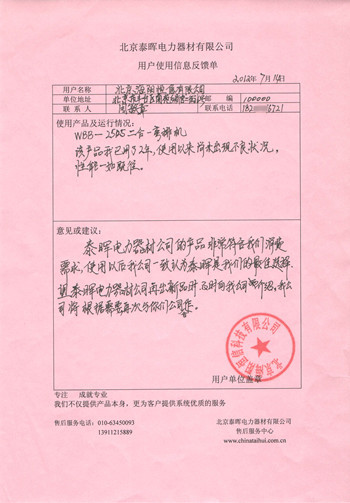 北京泰晖电力器材有限公司
用户使用信息反馈单
2012年7月14日
用户名称 北京 有限公司
单位地址 北京市 邮编 100000
联系人 联系电话 6721
使用产品及运行情况:
WBB-2505二合一 机
该产品我已用了2年,使用以来尚未出现不良状况。
性能一如既往。
意见或建议:
泰晖电力器材公司的产品非常符合我们消费
需求,使用以后我公司一致认为泰晖是我们的最佳选择
望泰晖电力器材公司再出新品时,及时向我公司 介绍,我公
司将根据需要再次与你们公司合作。
用户单位盖章
专注 成就专业
我们不仅提供产品本身,更为客户提供系统优质的服务
售后服务电话:010-63450093
13911215889
北京泰晖电力器材有限公司
售后服务中心
www.chinataihui.com.cn